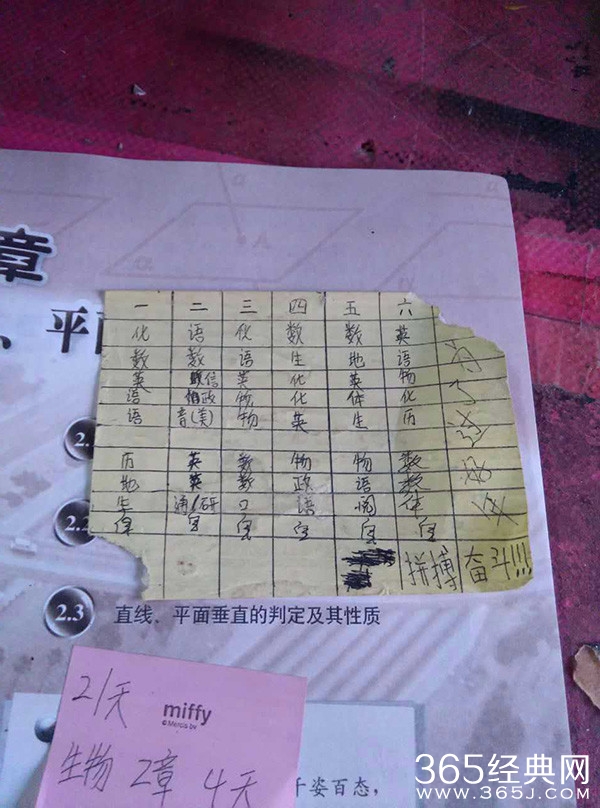 章
、平
一 二 三 四 五 六
化 语 化 数 数 英
数 数 语 生 地 语
英 信 英 化 英 物
语 政 物 化 体 化
语 音(美) 物 英 生 历
历 英 数 物 物 数
地 英 数 政 语 数
生 通/研 口 语 阅 体
自 自 自 自 自
拼搏 奋斗!!!
2.
2.2
2.3 直线、平面垂直的判定及其性质
21天 miffy
生物 2章 4天
千姿百态,
365经典网
WWW.365J.COM